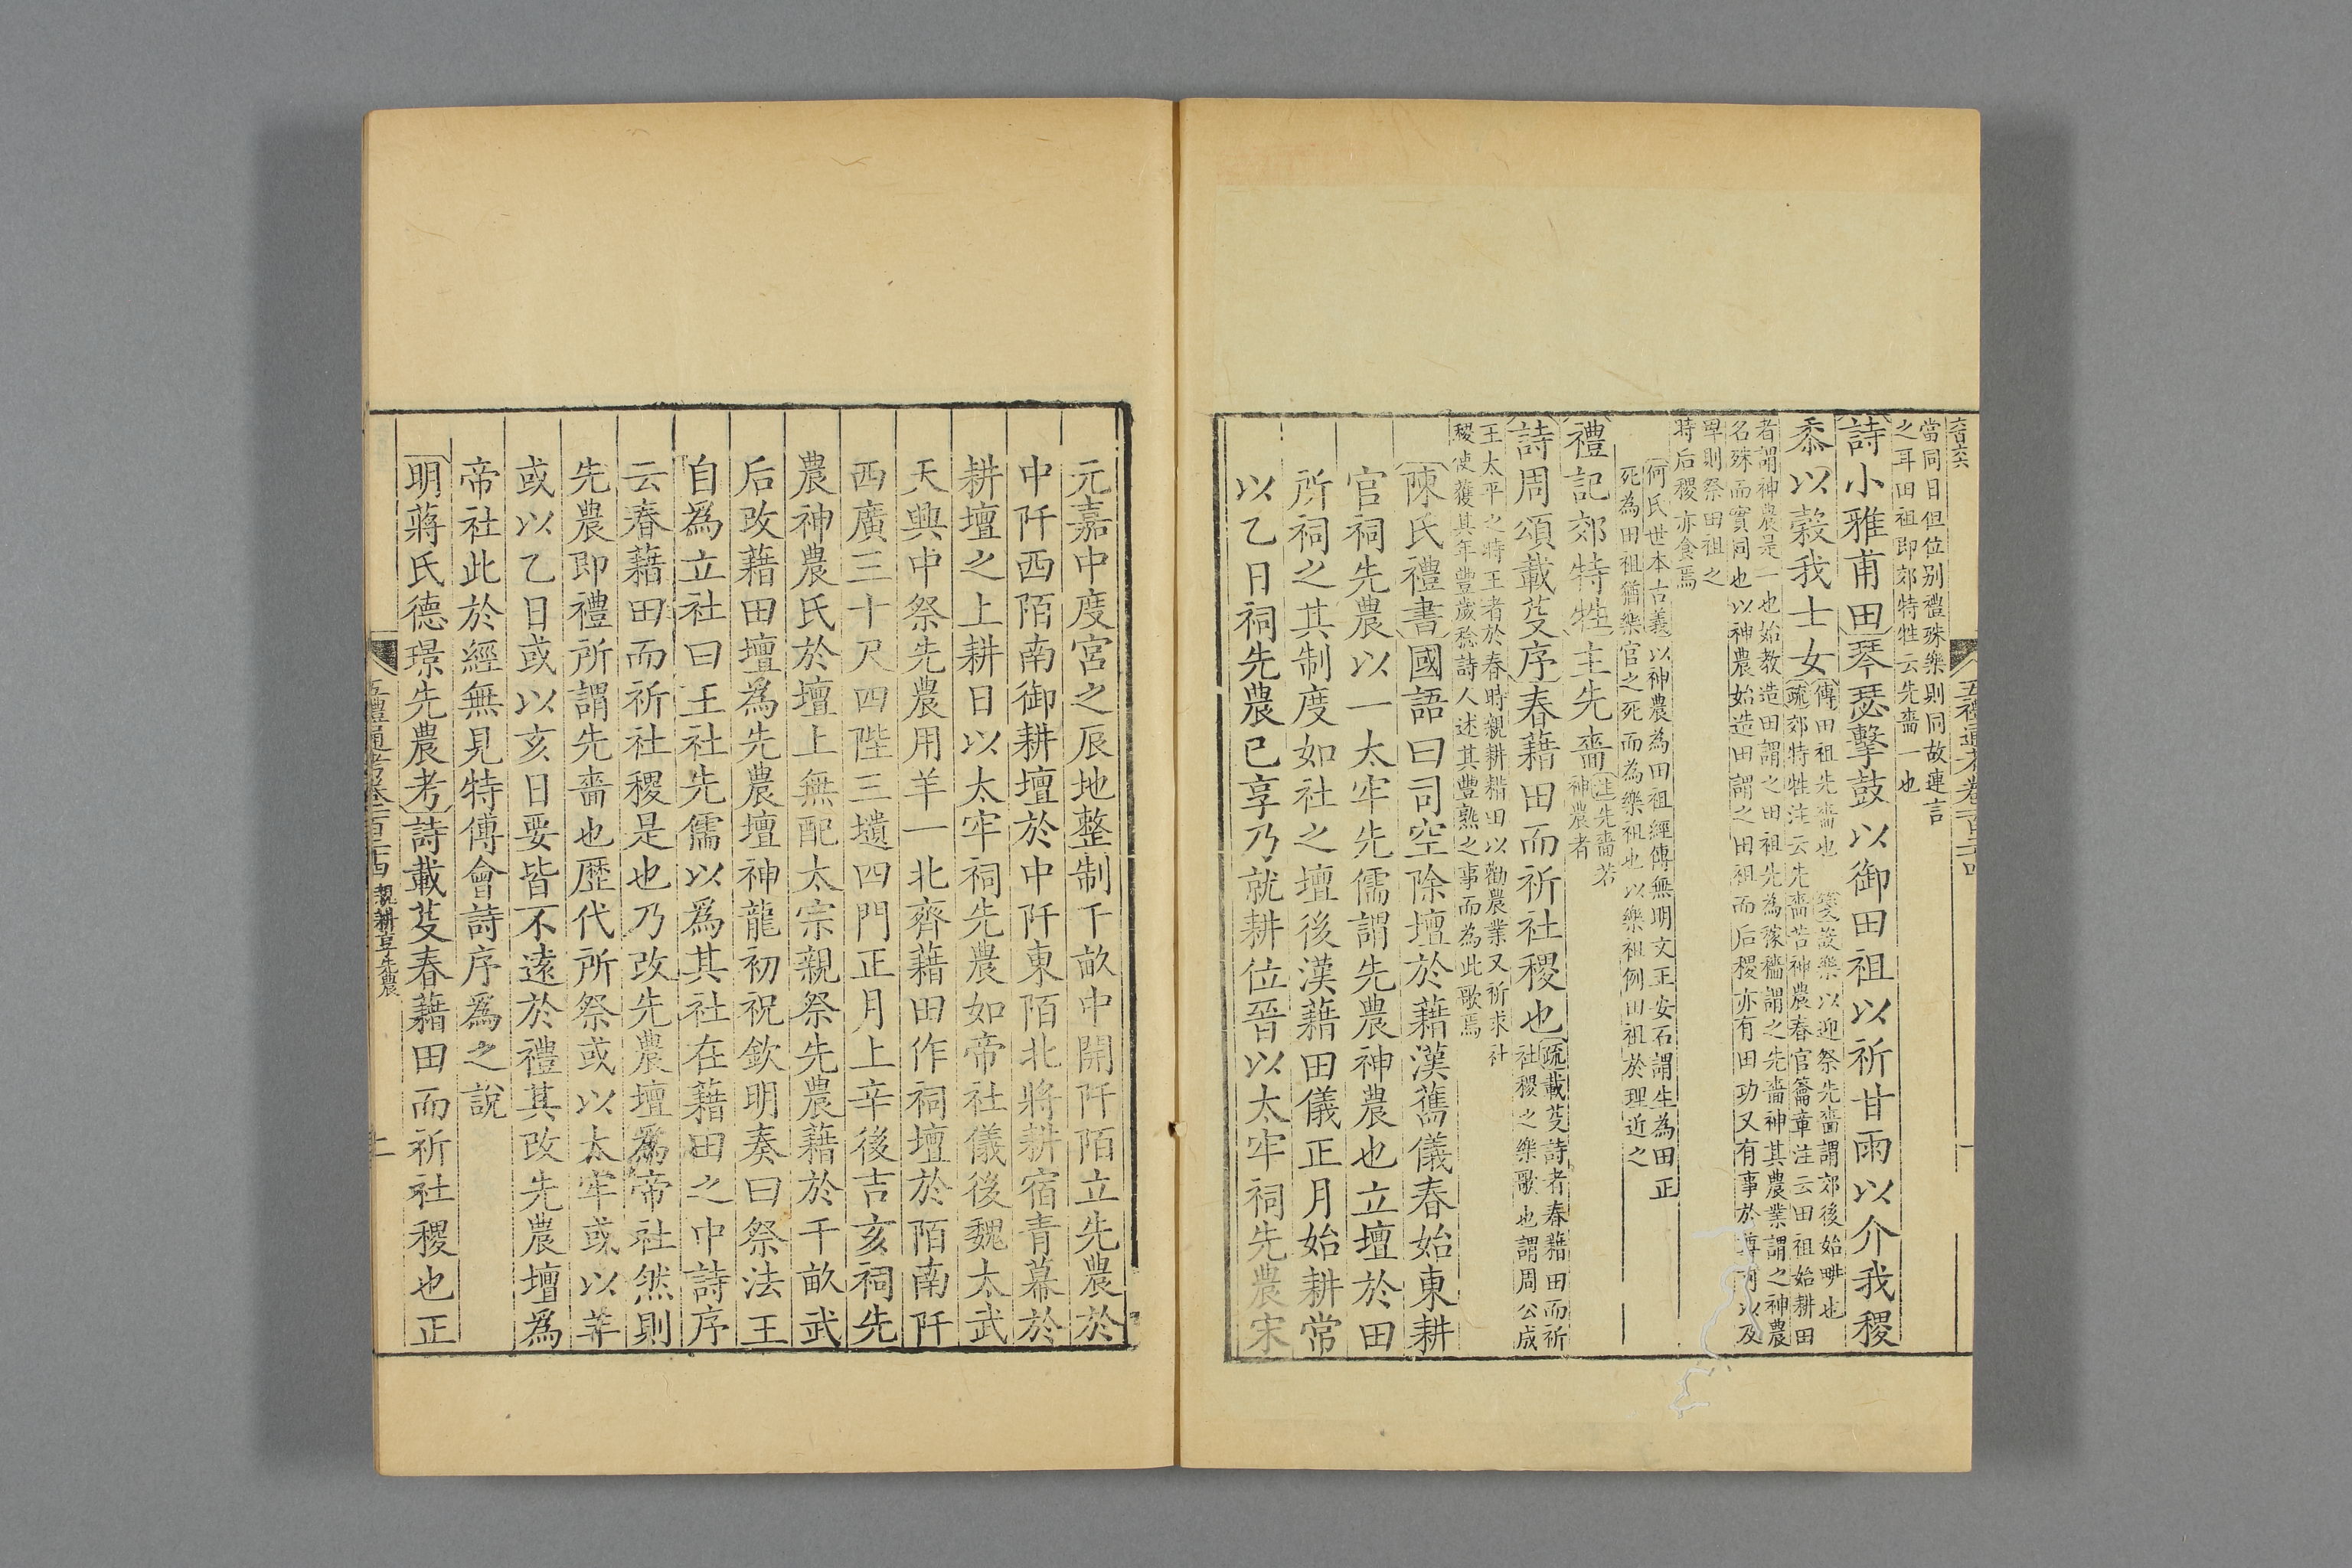 當同日但位别禮殊樂則同故連言
之耳田祖即郊特牲云先嗇一也
詩小雅甫田琴瑟擊鼓以御田祖以祈甘雨以介我稷
黍以榖我士女
傳田祖先嗇也 箋設樂以迎祭先嗇謂郊後始畊也
疏郊特牲注云先嗇若神農春官籥章注云田祖始耕田
者謂神農是一也始教造田謂之田祖先為稼穡謂之先嗇神其農業謂之神農
名殊而實同也以神農始造田謂之田祖而后稷亦有田功又有事於尊可以及
卑則祭田祖之
時后稷亦食焉
何氏世本古義以神農為田祖經傳無明文王安石謂生為田正
死為田祖猶樂官之死而為樂祖也以樂祖例田祖於理近之
禮記郊特牲主先嗇
注先嗇若
神農者
詩周頌載芟序春藉田而祈社稷也
疏載芟詩者春藉田而祈
社稷之樂歌也謂周公成
王太平之時王者於春時親耕耤田以勸農業又祈求社
稷使獲其年豐歲稔詩人述其豐熟之事而為此歌焉
陳氏禮書國語曰司空除壇於藉漢舊儀春始東耕
官祠先農以一太牢先儒謂先農神農也立壇於田
所祠之其制度如社之壇後漢藉田儀正月始耕常
以乙日祠先農已享乃就耕位晉以太牢祠先農宋
元嘉中度宮之辰地整制千畝中開阡陌立先農於
中阡西陌南御耕壇於中阡東陌北將耕宿青幕於
耕壇之上耕日以太牢祠先農如帝社儀後魏太武
天興中祭先農用羊一北齊藉田作祠壇於陌南阡
西廣三十尺四陛三壝四門正月上辛後吉亥祠先
農神農氏於壇上無配太宗親祭先農藉於千畝武
后改藉田壇為先農壇神龍初祝欽明奏曰祭法王
自為立社曰王社先儒以為其社在藉田之中詩序
云春藉田而祈社稷是也乃改先農壇為帝社然則
先農即禮所謂先嗇也歷代所祭或以太牢或以羊
或以乙日或以亥日要皆不遠於禮其改先農壇為
帝社此於經無見特傅會詩序為之說
明蔣氏德璟先農考詩載芟春藉田而祈社稷也正
五禮通考卷一百二十四 親耕享先農